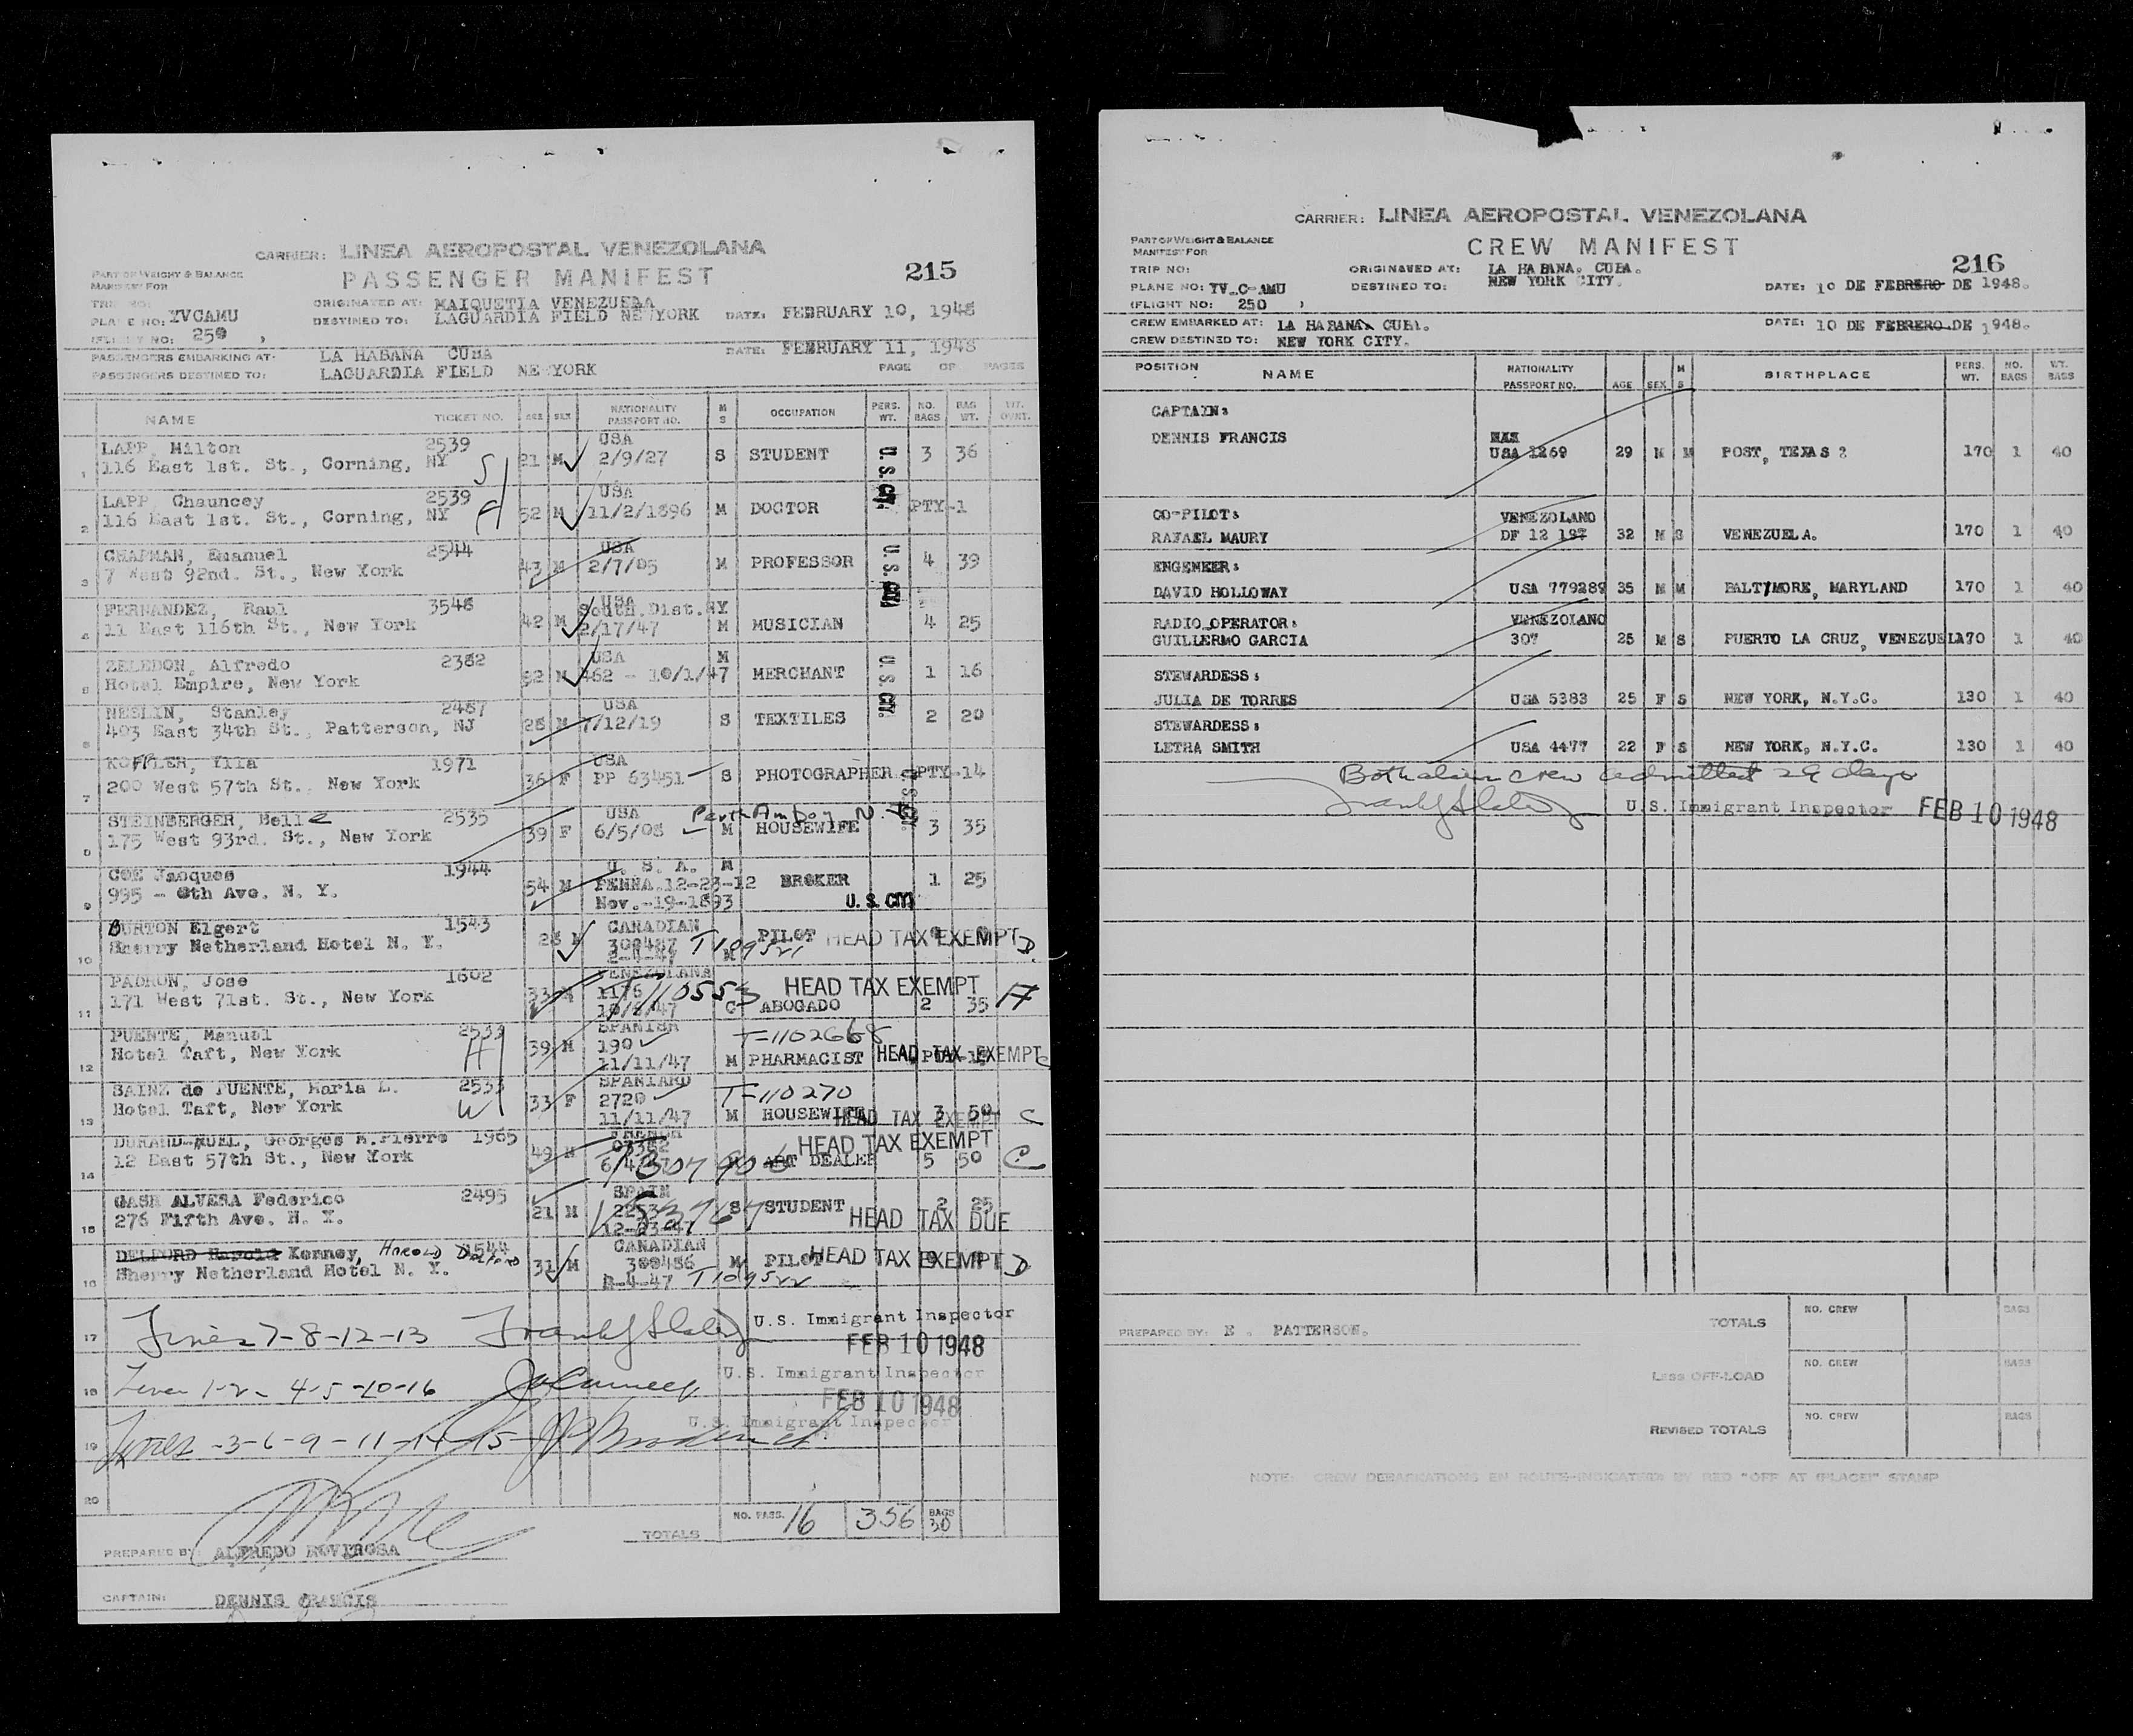 CARRIER: LINEA AEROPOSTAL VENEZOLANA
PASSENGER MANIFEST
215
PART OF WEIGHT & BALANCE
MANIFEST FOR
TRIP NO:
ORIGINATED AT: MAIQUETIA VENEZUELA
PLANE NO: YVCAMU
DESTINED TO: LAGUARDIA FIELD NE YORK DATE: FEBRUARY 10, 1948
(FLIGHT NO: 250 )
PASSENGERS EMBARKING AT: LA HABANA CUBA DATE: FEBRUARY 11, 1948
PASSENGERS DESTINED TO: LAGUARDIA FIELD NE YORK PAGE OF PAGES
NAME TICKET NO. AGE SEX NATIONALITY PASSPORT NO. M S OCCUPATION PERS. WT. NO. BAGS BAG WT.
1 LAPP, Milton 2539 USA
116 East 1st. St., Corning, NY 21 M 2/9/27 S STUDENT 3 36
2 LAPP Chauncey 2539 USA
116 East 1st. St., Corning, NY 52 M 11/2/1896 M DOCTOR PTY-1
U.S. CIT.
3 CHAPMAN, Emanuel 2544 USA
7 West 92nd. St., New York 43 M 2/7/05 M PROFESSOR 4 39
U.S. CIT.
4 FERNANDEZ, Raul 3548 USA South. Dist. NY
11 East 116th St., New York 42 M 2/17/47 M MUSICIAN 4 25
5 ZELEDON, Alfredo 2382 USA M
Hotel Empire, New York 52 M 462 - 10/1/47 MERCHANT 1 16
U.S. CIT.
6 NESLIN, Stanley 2487 USA
403 East 34th St., Patterson, NJ 28 M 7/12/19 S TEXTILES 2 20
7 KOFFLER, Ylla 1971 USA
200 West 57th St., New York 36 F PP 63451 S PHOTOGRAPHER PTY-14
U.S. CIT.
8 STEINBERGER, Belle 2535 USA Perth Amboy N.J.
175 West 93rd. St., New York 39 F 6/5/08 M HOUSEWIFE 3 35
9 COE Jacques 1944 U. S. A. M
995 - 5th Ave. N. Y. 54 M PENNA 12-23-12 BROKER 1 25
Nov.-19-1893 U.S. CIT
10 BURTON Elgert 1543 CANADIAN
Sherry Netherland Hotel N. Y. 28 M 309487 T109521 PILOT HEAD TAX EXEMPT D
11 PADRON, Jose 1602 VENEZOLANA
171 West 71st. St., New York 33 M 1176 T110553 HEAD TAX EXEMPT A
C ABOGADO 2 35
12 PUENTE, Manuel 2533 SPANISH T-1102668
Hotel Taft, New York H 39 M 190
11/11/47 M PHARMACIST HEAD TAX EXEMPT C
13 SAINZ de PUENTE, Maria L. 2533 SPANIARD T-110270
Hotel Taft, New York W 33 F 2720
11/11/47 M HOUSEWIFE HEAD TAX EXEMPT 3 50 C
14 DURAND-RUEL, Georges M. Pierre 1965 FRENCH HEAD TAX EXEMPT
12 East 57th St., New York 49 M ART DEALER 5 50 C
15 GASH ALVERA Federico 2495 SPAIN
276 Fifth Ave. N. Y. 21 M 2253 S STUDENT 2 25
12-23-47 HEAD TAX DUE
16 DELFORD Harold Kenney, Harold Delford 1544 CANADIAN
Sherry Netherland Hotel N. Y. 31 M 309486 M PILOT HEAD TAX EXEMPT D
2-4-47 T109522
17 Lines 7-8-12-13 U.S. Immigrant Inspector
FEB 10 1948
18 Lines 1-2-4-5-10-16 U.S. Immigrant Inspector
FEB 10 1948
19 Lines -3-6-9-11-14-15 U.S. Immigrant Inspector
20
TOTALS NO. PASS. 16 356 BAGS 30
PREPARED BY: ALFREDO ROVIROSA
CAPTAIN: DENNIS FRANCIS
CARRIER: LINEA AEROPOSTAL VENEZOLANA
CREW MANIFEST
216
PART OF WEIGHT & BALANCE
MANIFEST FOR
TRIP NO: ORIGINATED AT: LA HABANA. CUBA.
PLANE NO: YV-C-AMU DESTINED TO: NEW YORK CITY. DATE: 10 DE FEBRERO DE 1948.
(FLIGHT NO: 250 )
CREW EMBARKED AT: LA HABANA CUBA. DATE: 10 DE FEBRERO DE 1948.
CREW DESTINED TO: NEW YORK CITY.
POSITION NAME NATIONALITY PASSPORT NO. AGE SEX M S BIRTHPLACE PERS. WT. NO. BAGS WT. BAGS
CAPTAIN:
DENNIS FRANCIS USA 1269 29 M M POST, TEXAS 170 1 40
CO-PILOT: VENEZOLANO
RAFAEL MAURY DF 12 197 32 M S VENEZUELA. 170 1 40
ENGENEER:
DAVID HOLLOWAY USA 779289 35 M M BALTYMORE, MARYLAND 170 1 40
RADIO OPERATOR: VENEZOLANO
GUILLERMO GARCIA 307 25 M S PUERTO LA CRUZ, VENEZUELA 170 1 40
STEWARDESS:
JULIA DE TORRES USA 5383 25 F S NEW YORK, N.Y.C. 130 1 40
STEWARDESS:
LETHA SMITH USA 4477 22 F S NEW YORK, N.Y.C. 130 1 40
Both alien crew admitted 29 days
U.S. Immigrant Inspector FEB 10 1948
PREPARED BY: E. PATTERSON.
TOTALS NO. CREW BAGS
LESS OFF-LOAD NO. CREW BAGS
REVISED TOTALS NO. CREW BAGS
NOTE: CREW DEBARKATIONS EN ROUTE-INDICATED BY RED "OFF AT (PLACE)" STAMP